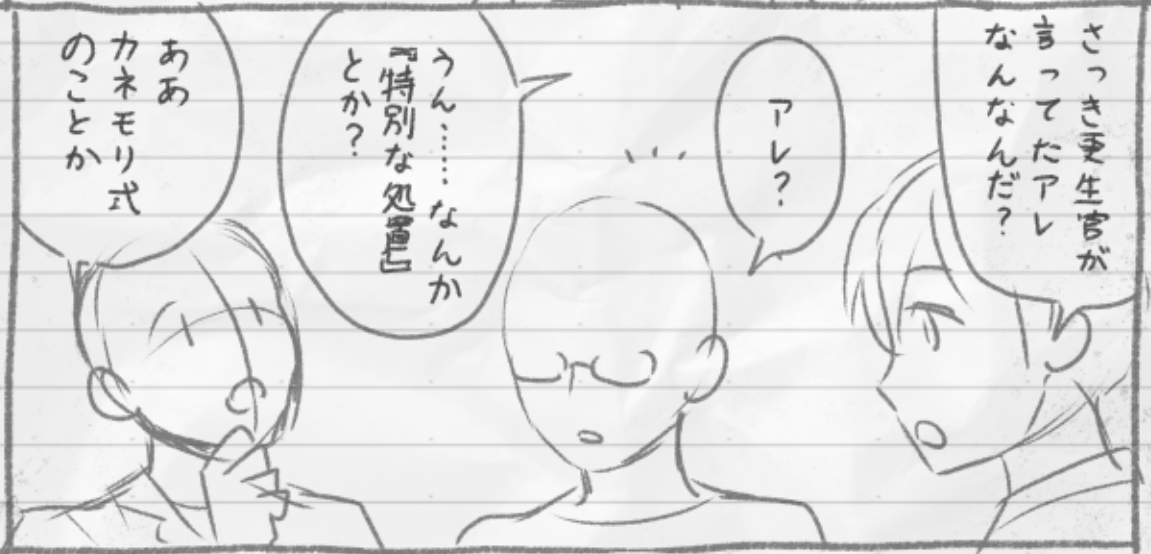 さっき更生官が
言ってたアレ
なんなんだ？
アレ？
うん……なんか
『特別な処置』
とか？
ああ
カネモリ式
のことか